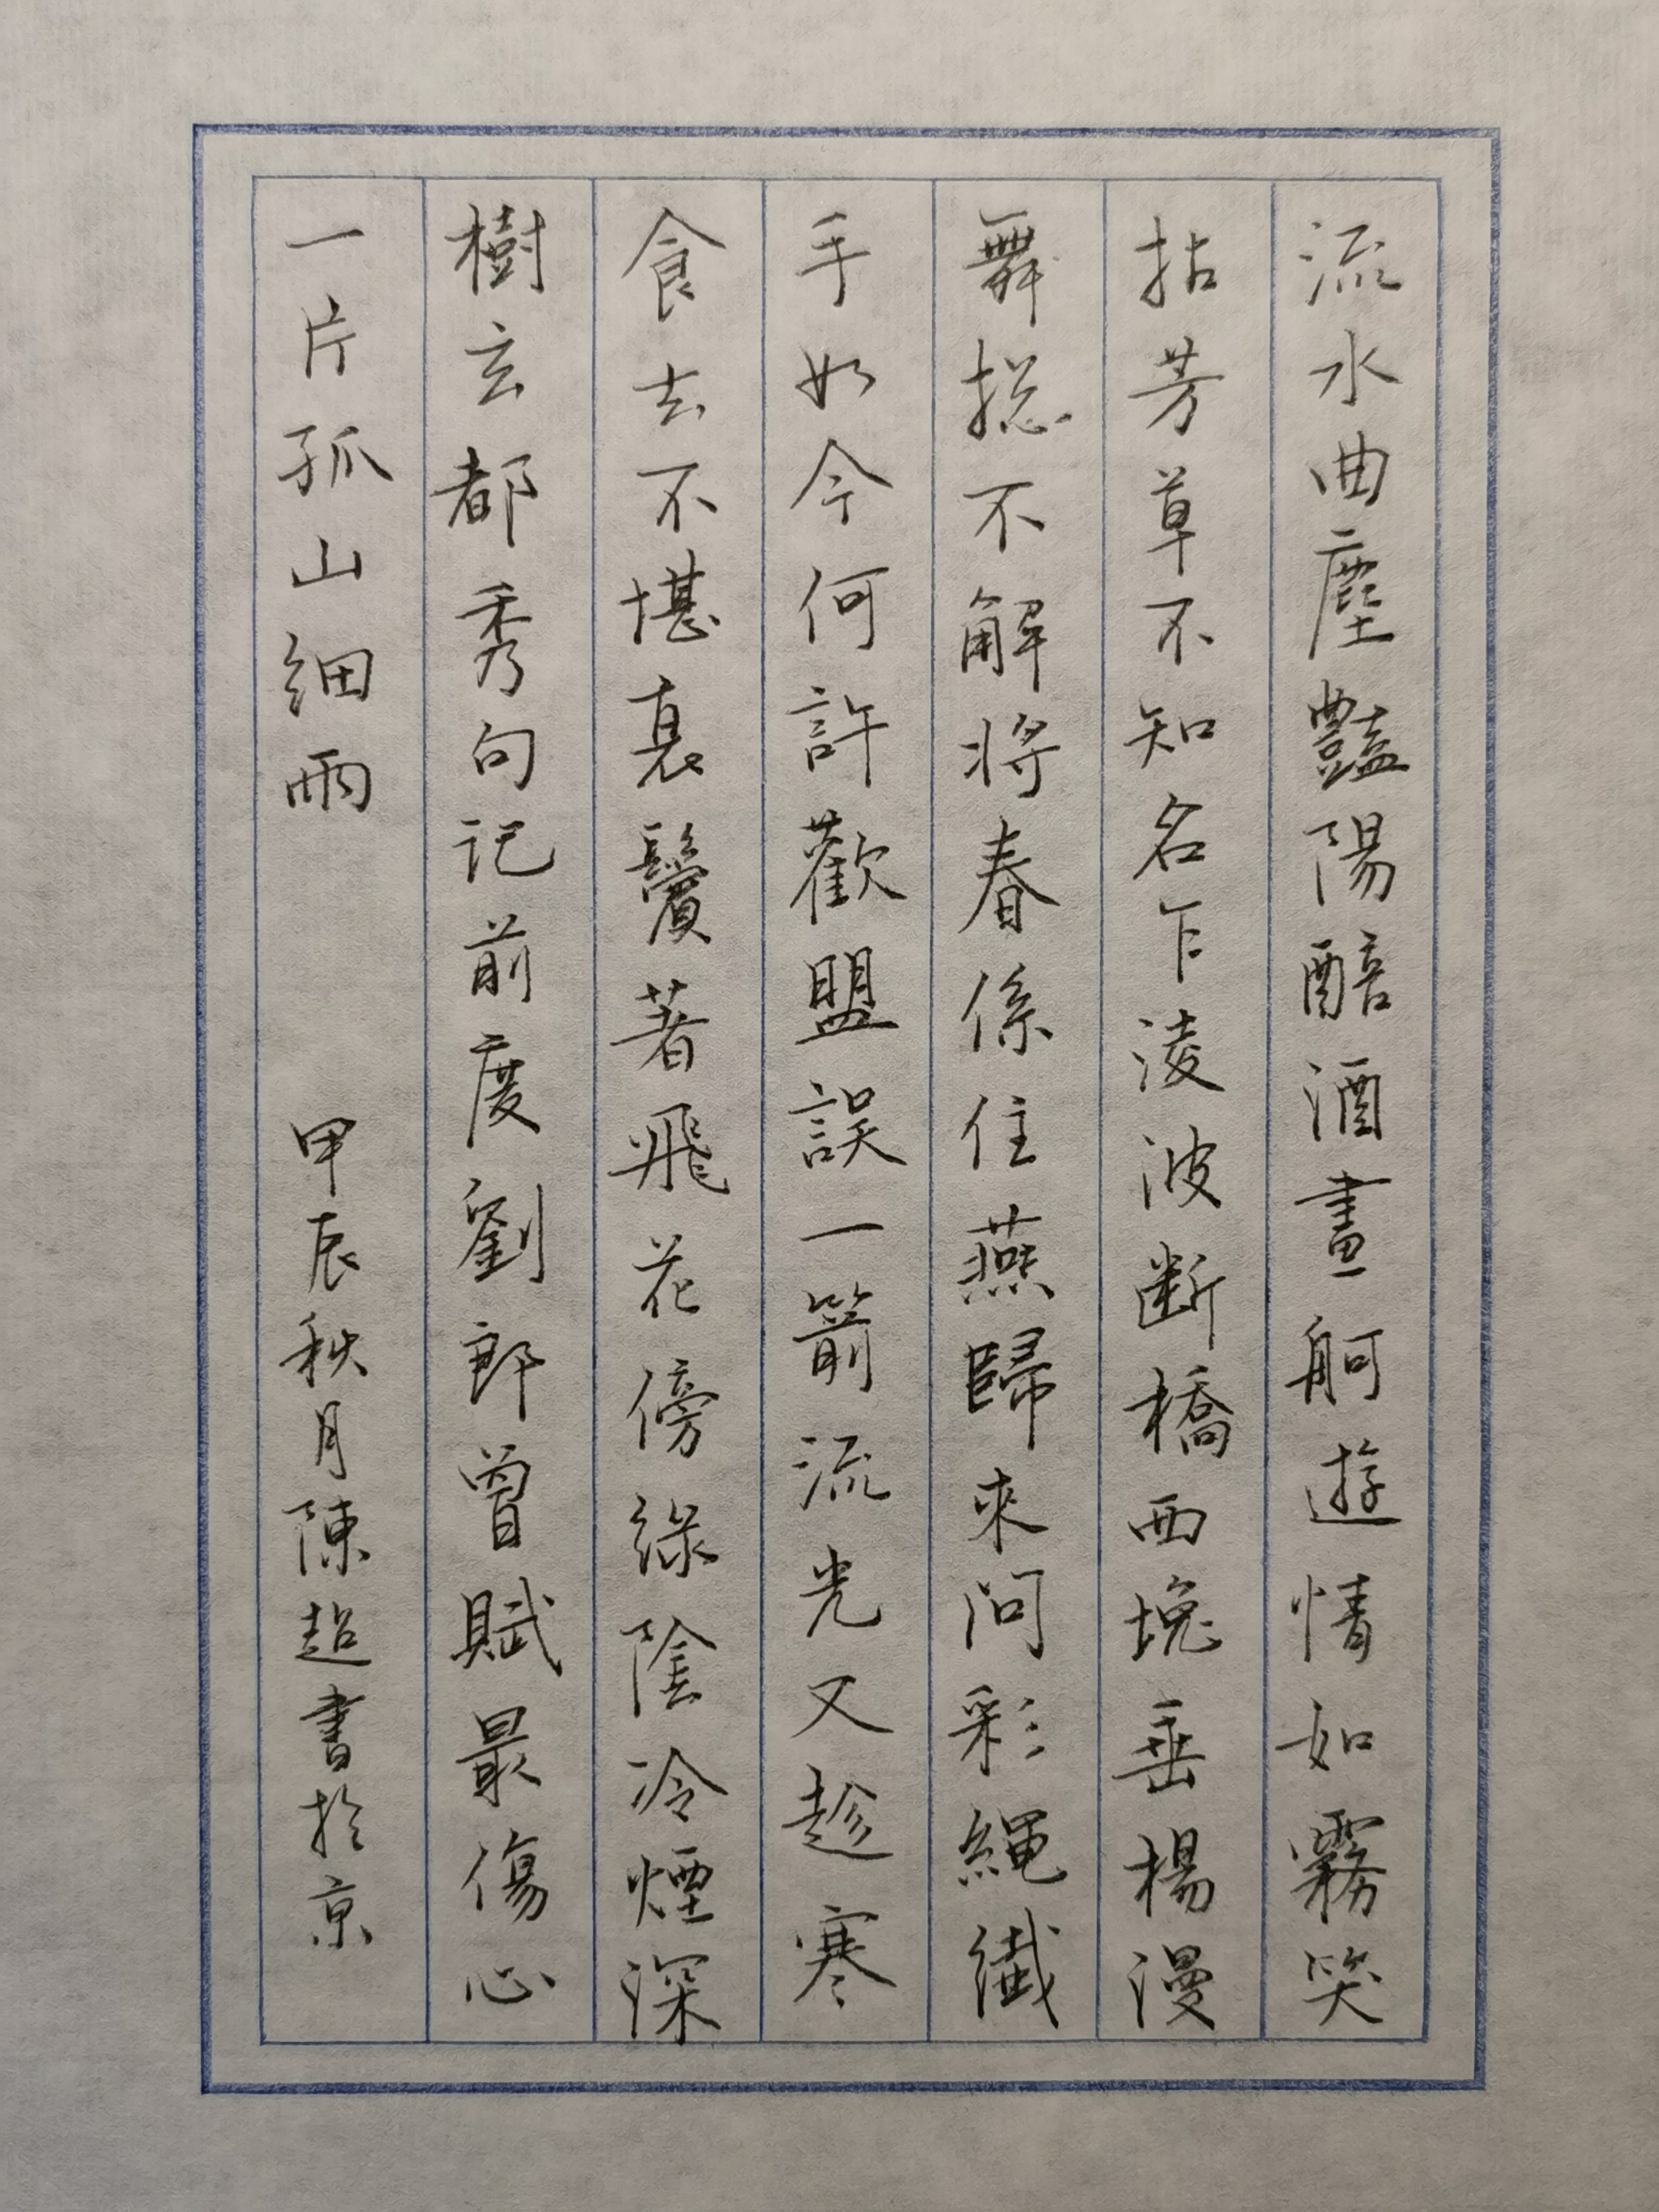 流水曲塵豔陽醅酒畫舸遊情如霧笑
拈芳草不知名乍淩波斷橋西堍垂楊漫
舞總不解將春係住燕歸來問彩繩纖
手如今何許歡盟誤一箭流光又趁寒
食去不堪衰鬢著飛花傍綠陰冷煙深
樹玄都秀句記前度劉郎曾賦最傷心
一片孤山細雨 甲辰秋月陳超書於京